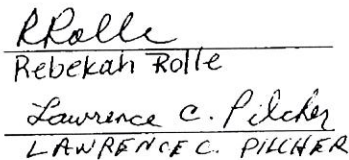 RRolle
Rebekah Rolle
Lawrence C. Pilcher
LAWRENCE C. PILCHER